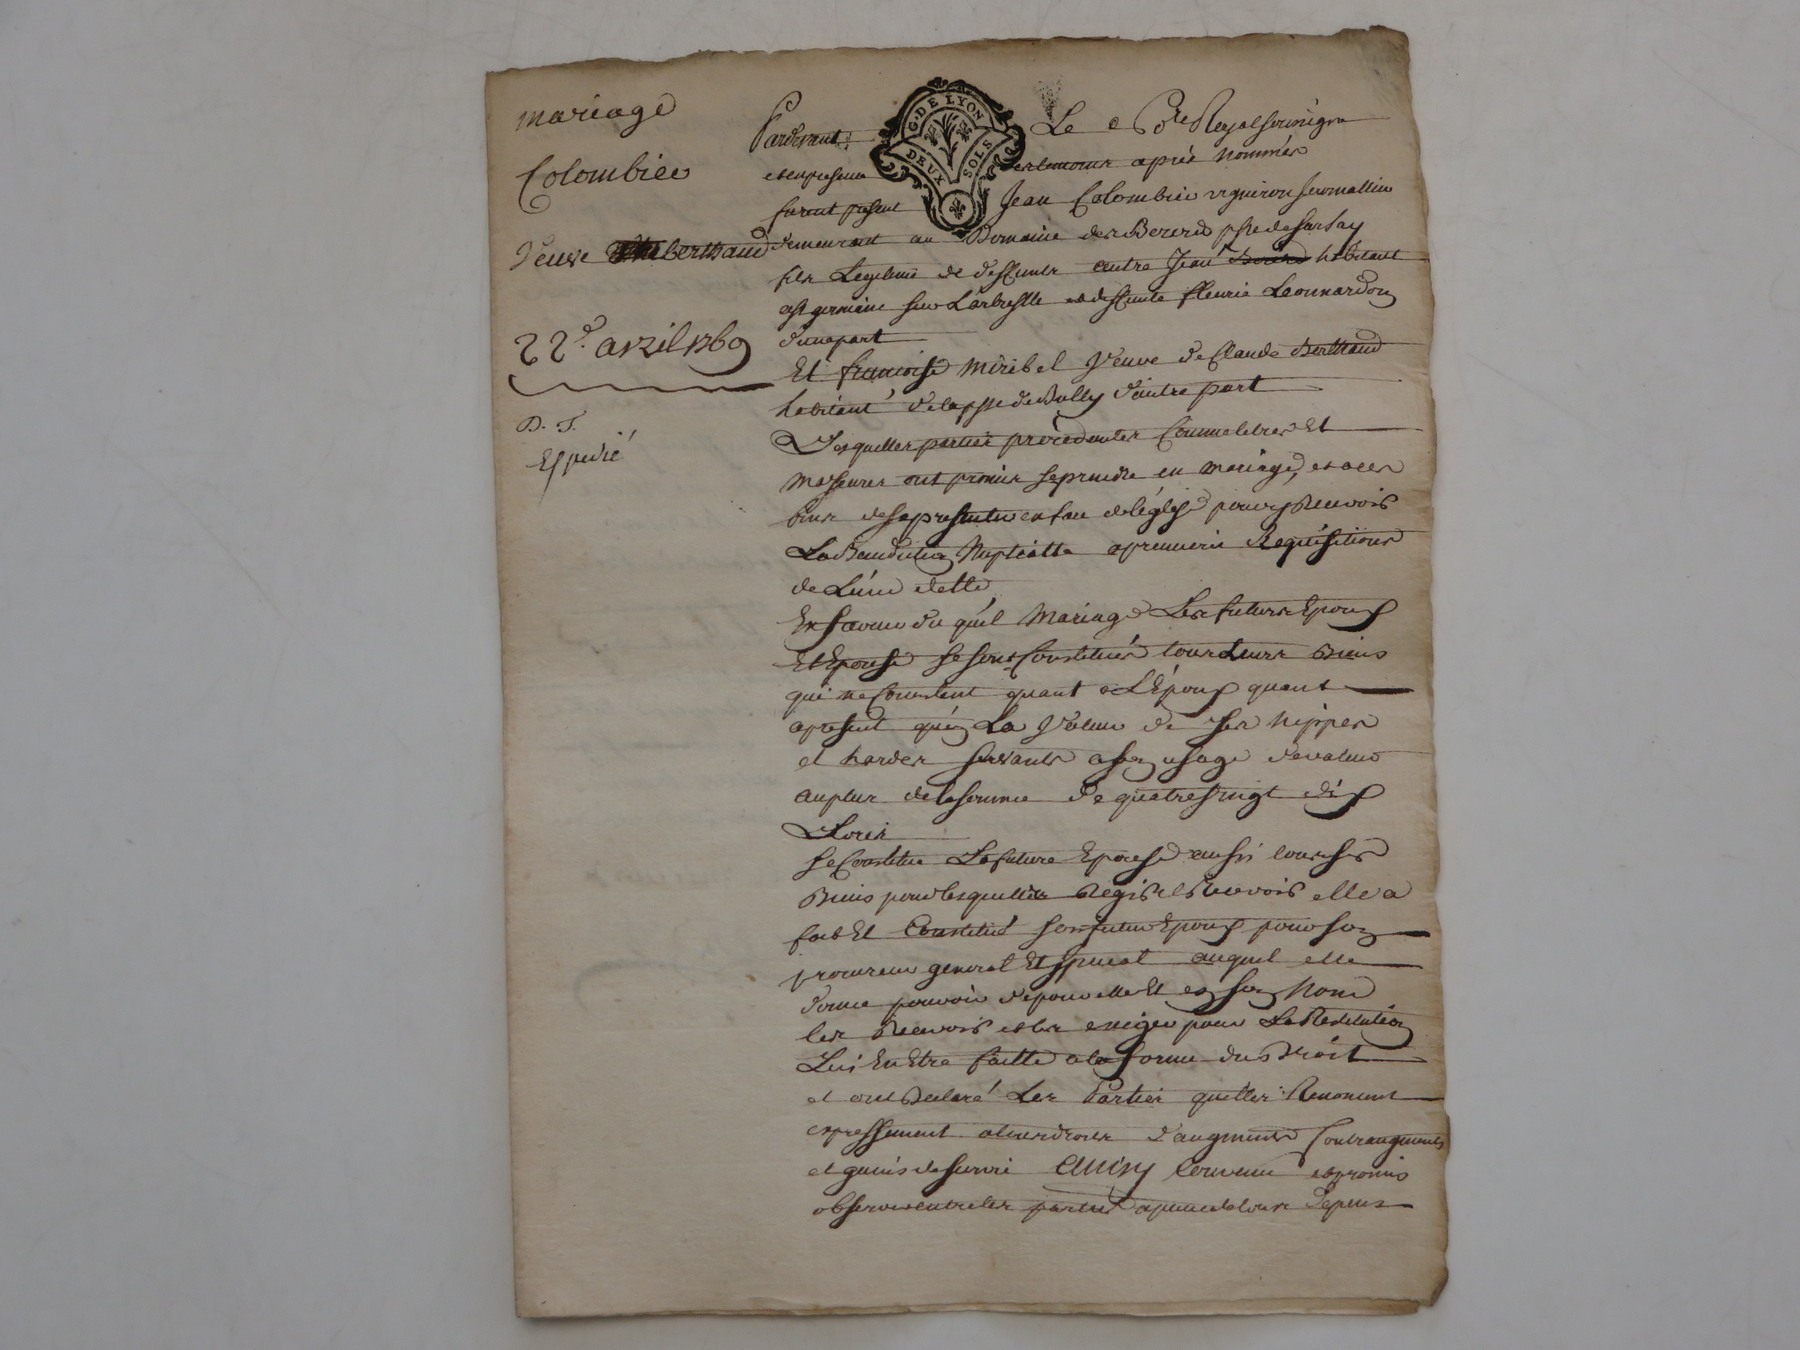 mariage
Colombier
Veuve bertraud
22e. avril 1769
D. T.
Expedié
G. DE LYON
DEUX SOLS
Pardevant Le Nore Royal soussigné
et en presence des temoins aprés nommés
furent present Jean Colombier vigneron
demeurant au Domaine des psse de Sarsay
fils Legitime de deffunts autre Jean habitant
a St germain sur Larbresle et deffunte fleurie Leonnardon
d'une part
Et francoise Miribel Veuve de Claude Bertraud
habitant de la psse de Bully d'autre part
Lesquelles parties procedantes Comme libres Et
majeures ont promis se prendre en mariage, et a ces
fins de se presenter en face de l'église pour y Recevoir
La Benediction Nuptialle a premiere Requisitions
de L'une d'elle
En faveur du quel Mariage Les futurs Epoux
Et Epouse se sont Constitués tous Leurs Biens
qui ne Consistent quant a L'Epoux quant
a present qu'en La Valeur de ses nippes
et hardes servants a son usage de valeur
au plus de la somme de quatre vingt dix
Livres
Se Constitue La future Epouse aussi tous ses
Biens pour lesquelles Régir et Recevoir elle a
fait Et Constitué son futur Epoux pour son
procureur general Et special auquel elle
donne pouvoir de pour elle Et en son Nom
les Recevoir et les exiger pour La Restitution
Lui En Etre faitte a la forme du Droit
et ont Declaré Les Parties quelles Renoncent
expressement a tous droits d'augments Contraugments
et gains de survie Ainsy Convenu et promis
observer entre les parties a peine de tous Depens